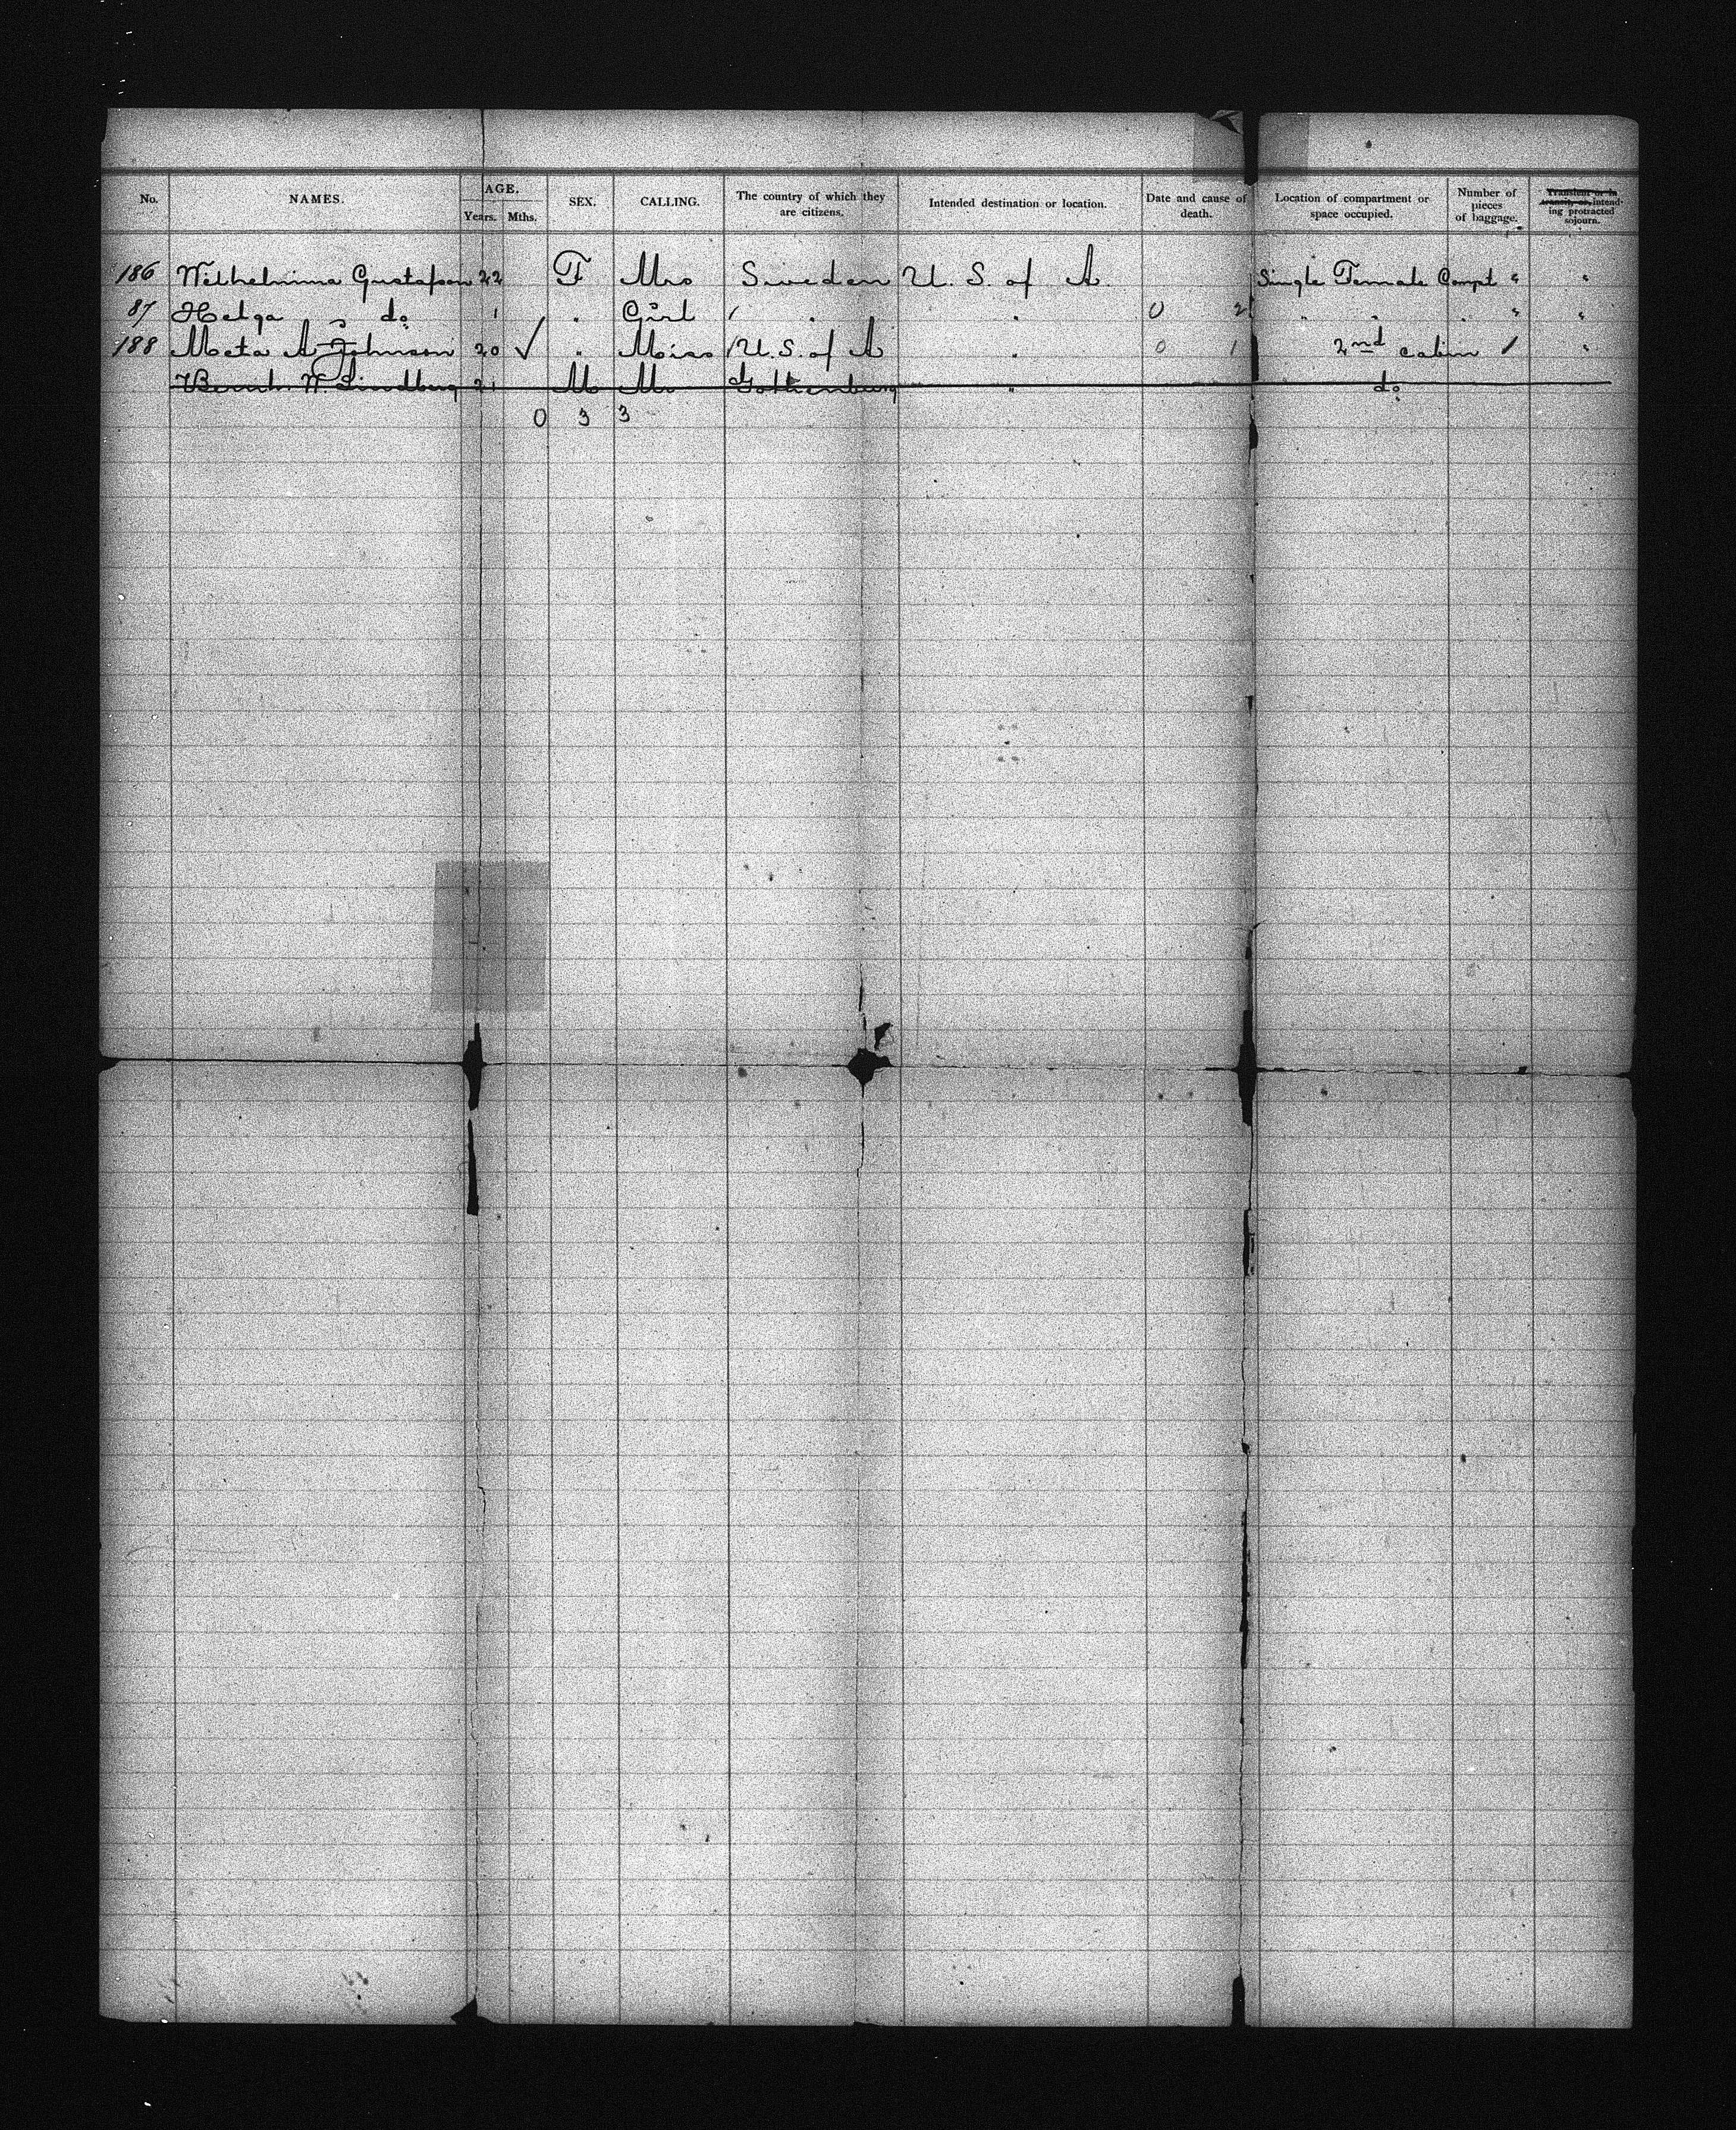 No. NAMES. AGE. Years. Mths. SEX. CALLING. The country of which they are citizens. Intended destination or location. Date and cause of death. Location of compartment or space occupied. Number of pieces of baggage. Transient or in transit, or intending protracted sojourn.
186 Wilhelmina Gustafson 22 F Mrs Sweden U. S. of A. Single Female Compt "
87 Helga " do 1 " Girl / " " 0 2 " " " " "
188 Meta A Johnson 20 ✓ " Miss / U. S. of A " 0 1 2nd cabin / "
Bernh. W. Lindberg 21 M Mr Gothenburg " do
0 3 3